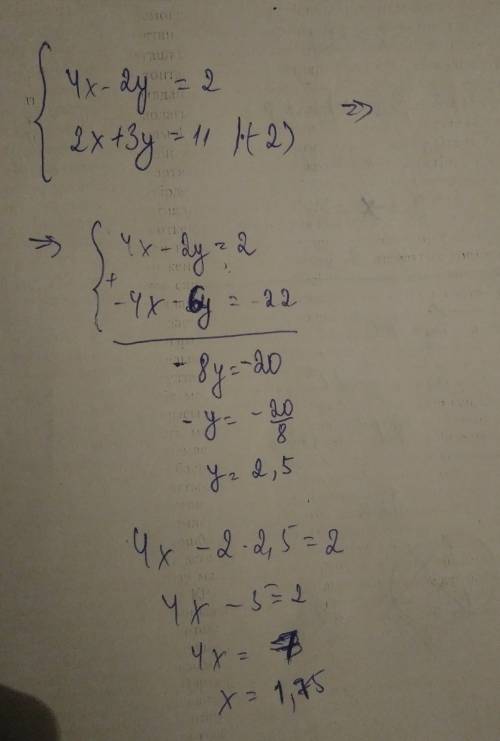 4x - 2y = 2
2x + 3y = 11 |·(-2)
=>
=>
4x - 2y = 2
+
-4x - 6y = -22
-8y = -20
-y = -20/8
y = 2,5
4x - 2 · 2,5 = 2
4x - 5 = 2
4x = 7
x = 1,75